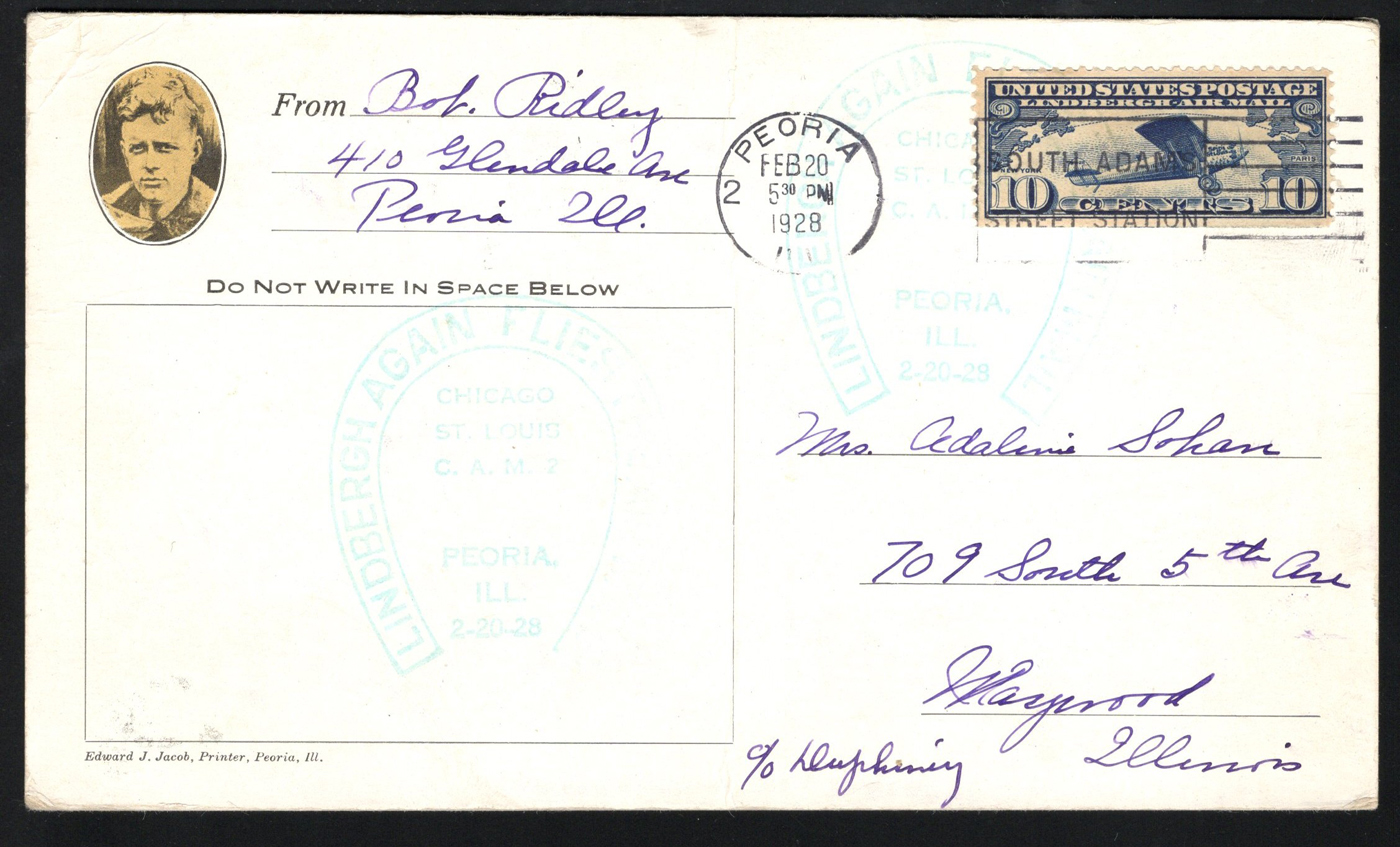 From Bob. Ridley
410 Glendale Ave
Peoria Ill.
DO NOT WRITE IN SPACE BELOW
LINDBERGH AGAIN FLIES
CHICAGO
ST. LOUIS
C. A. M. 2
PEORIA,
ILL.
2-20-28
Edward J. Jacob, Printer, Peoria, Ill.
PEORIA
FEB 20
2 530 PM
1928
LINDBERGH AGAIN
CHICA
ST. LO
C. A.
PEORIA,
ILL.
2-20-28
UNITED STATES POSTAGE
LINDBERGH AIR MAIL
NEW YORK PARIS
10 CENTS 10
SOUTH ADAMS
STREET STATION
Mrs. Adaline Sohan
709 South 5th Ave
Maywood
Illinois
c/o